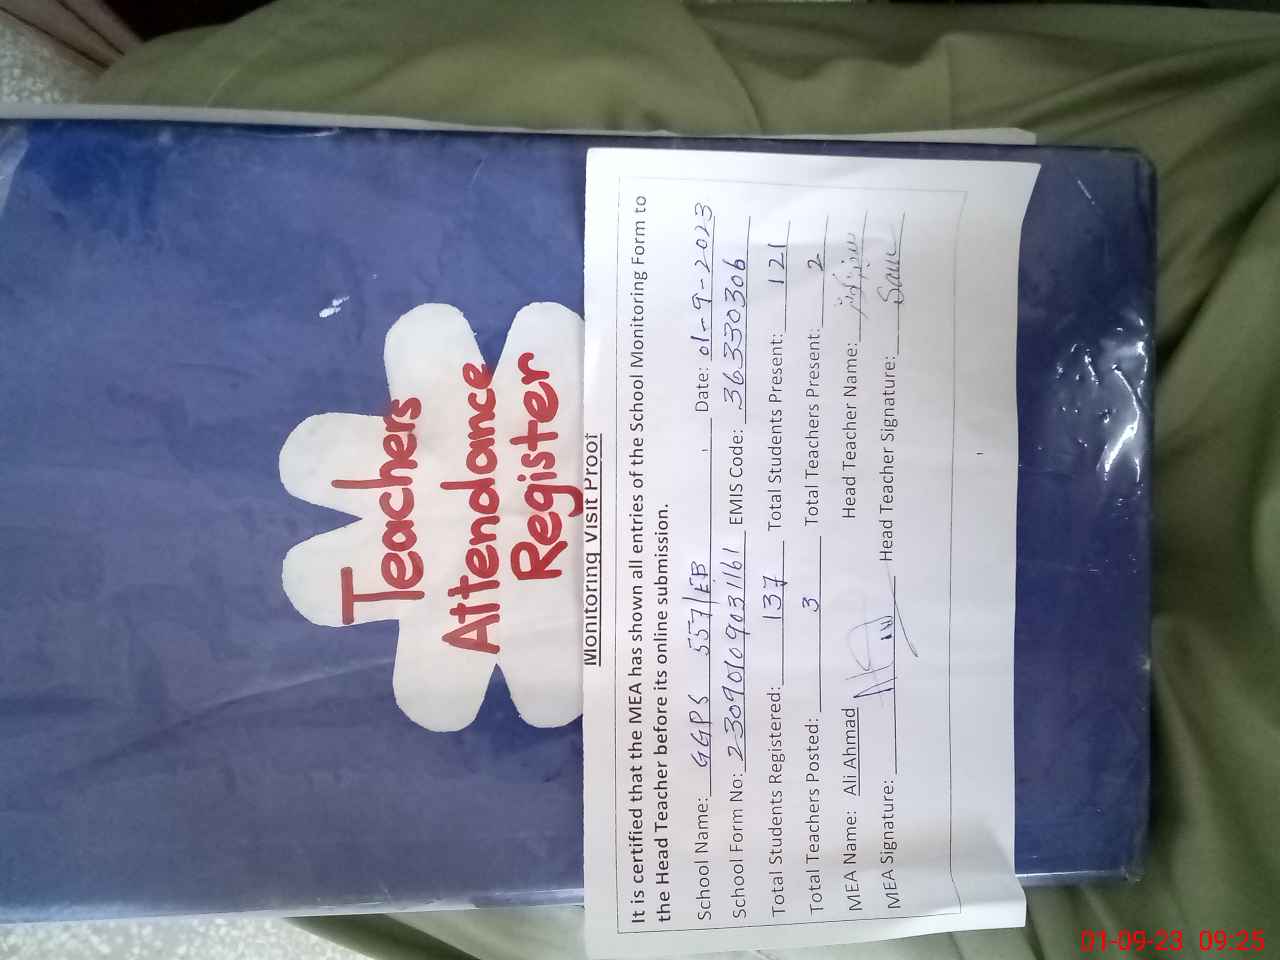 Teachers
Attendance
Register
Monitoring Visit Proof
It is certified that the MEA has shown all entries of the School Monitoring Form to
the Head Teacher before its online submission.
School Name: GGPS 557/EB Date: 01-9-2023
School Form No: 23090109031161 EMIS Code: 36330306
Total Students Registered: 137 Total Students Present: 121
Total Teachers Posted: 3 Total Teachers Present: 2
MEA Name: Ali Ahmad Head Teacher Name:
MEA Signature: Head Teacher Signature:
01-09-23 09:25